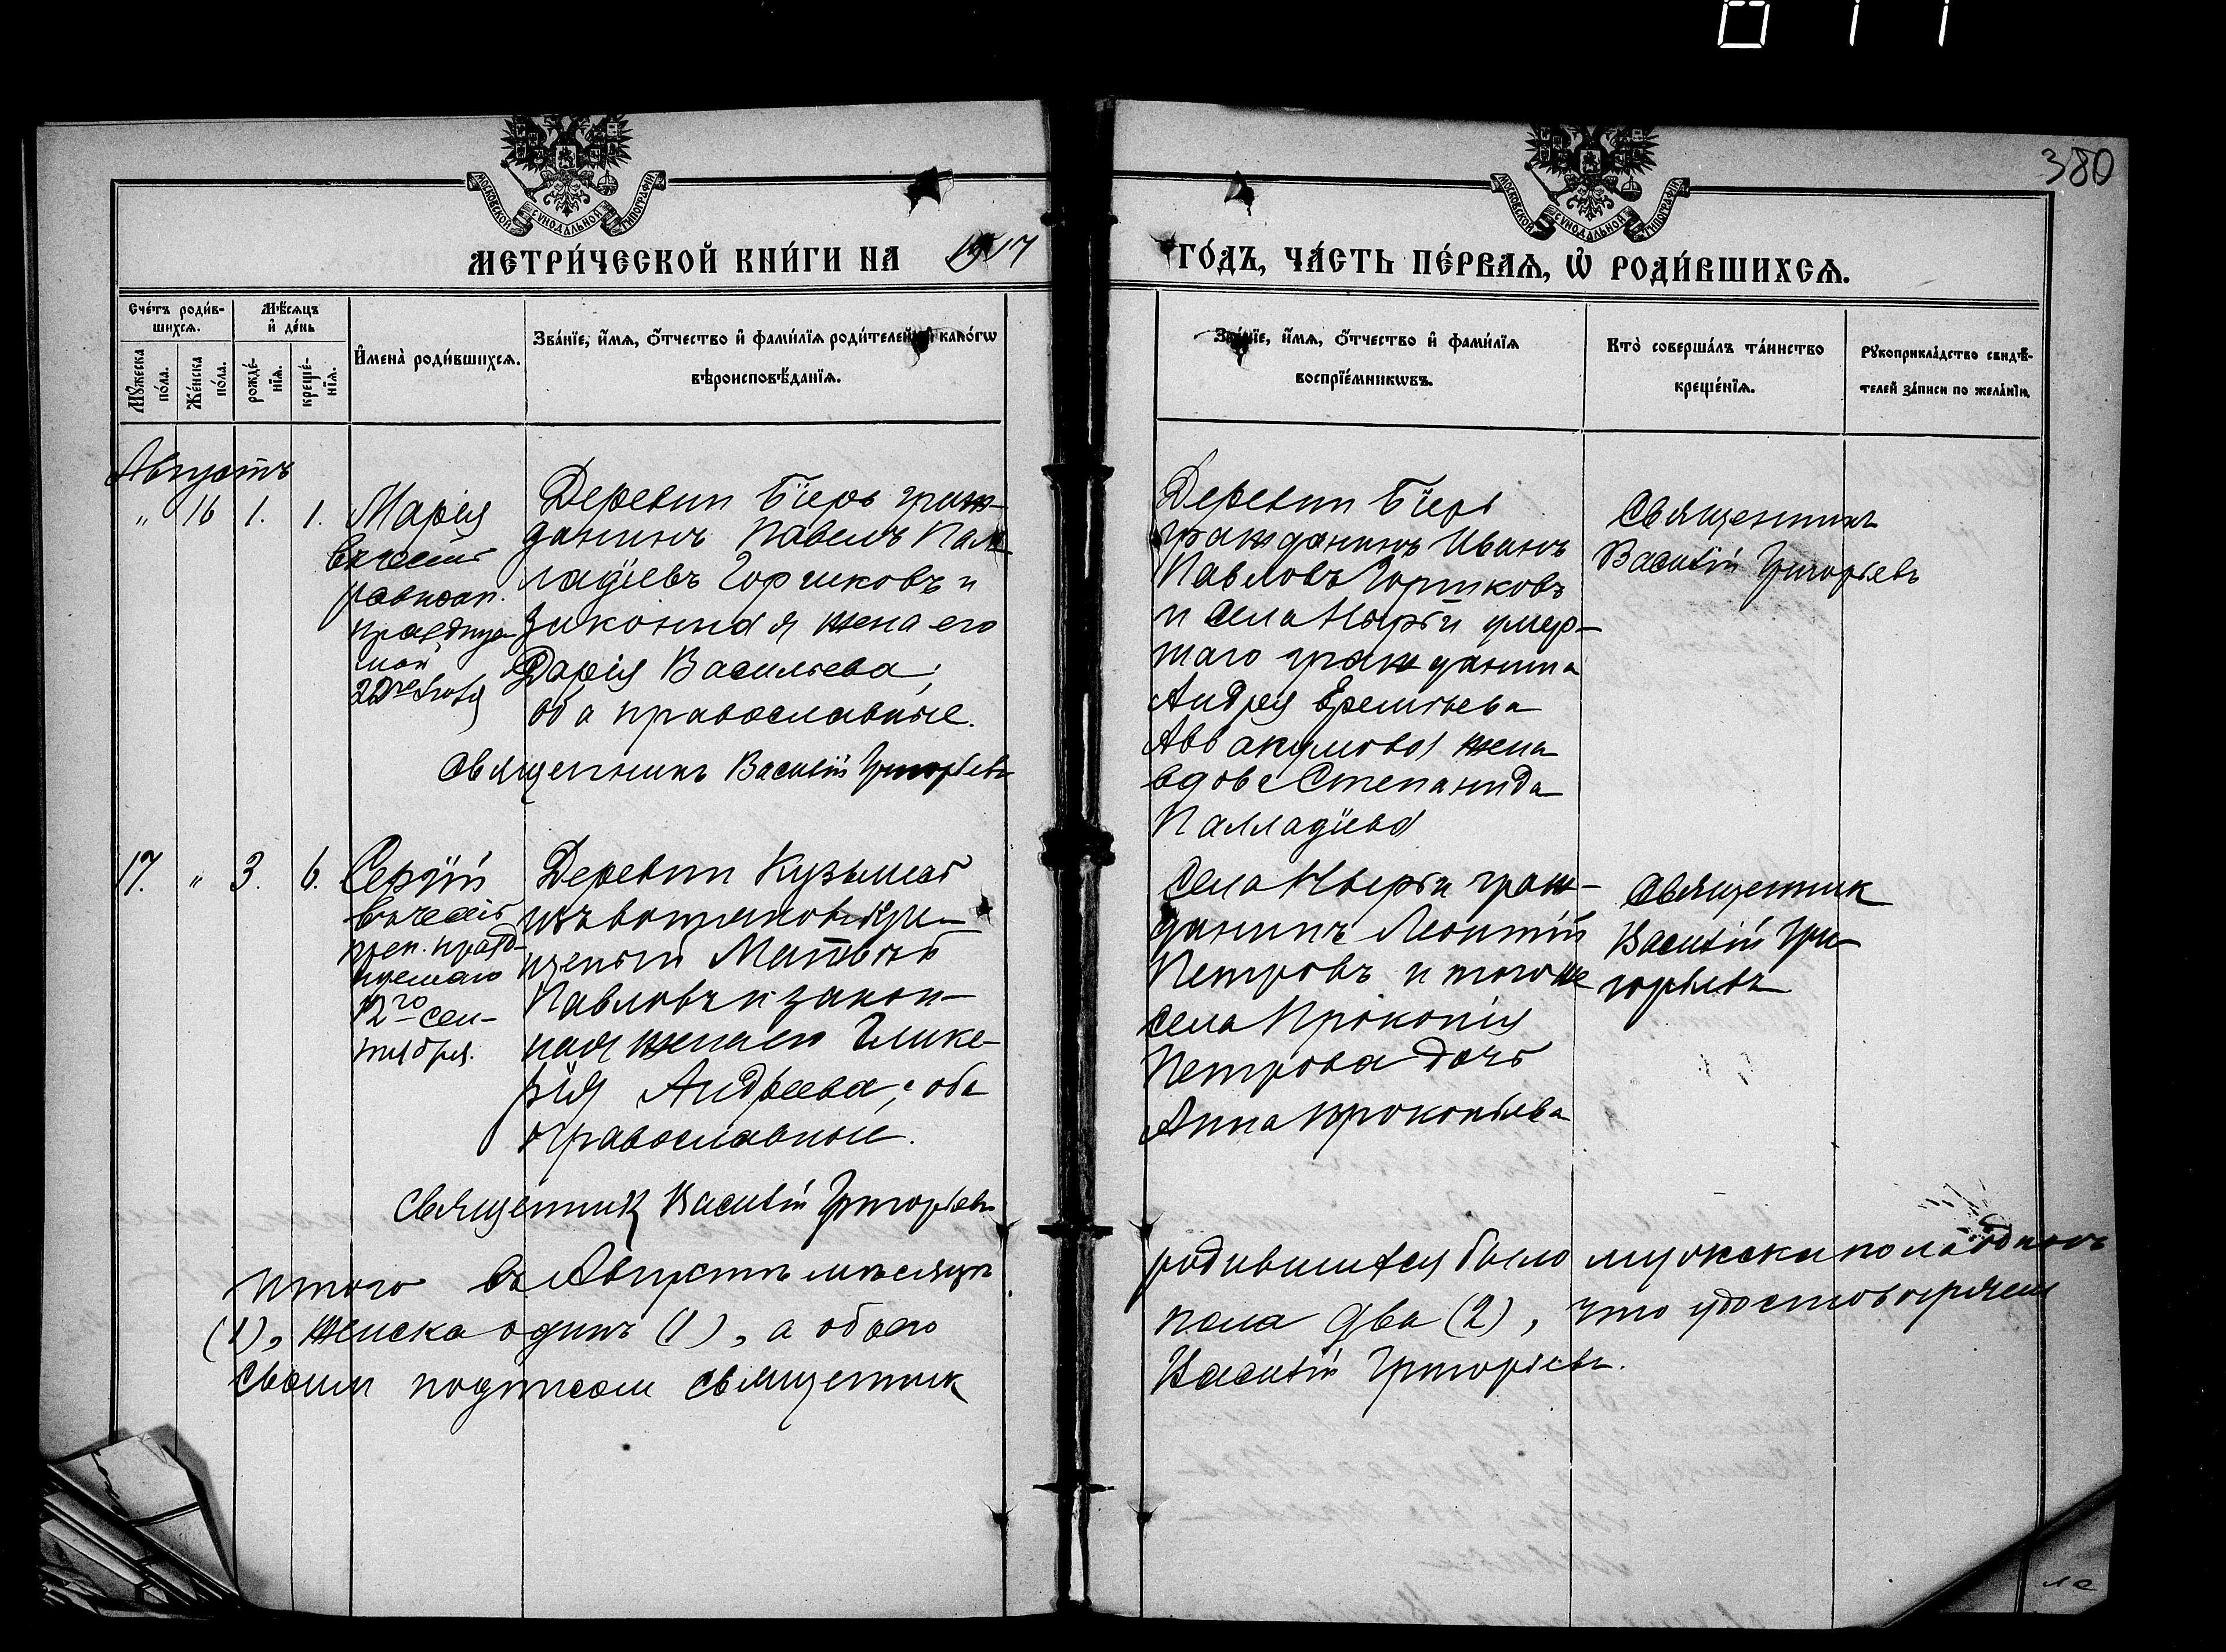 011
380
МОСКОВСКОЙ СѴНОДАЛЬНОЙ ТИПОГРАФІИ
МОСКОВСКОЙ СѴНОДАЛЬНОЙ ТИПОГРАФІИ
МЕТРИ́ЧЕСКОЙ КНИ́ГИ НА 1917
ГО́ДЪ, ЧА́СТЬ ПЕ́РВАѦ, Ѡ҆ РОДИ́ВШИХСѦ.
Сче́тъ роди́в-
шихсѧ.
Мꙋ́жеска по́ла.
Же́нска по́ла.
Мѣ́сѧцъ
и҆ де́нь
рожде́-
нїѧ.
креще́-
нїѧ.
И҆мена̀ роди́вшихсѧ.
Зва́нїе, и҆́мѧ, ѻ҆́тчество и҆ фами́лїѧ роди́телей, и҆ како́гѡ
вѣроисповѣ́данїѧ.
Зва́нїе, и҆́мѧ, ѻ҆́тчество и҆ фами́лїѧ
воспрїе́мникѡвъ.
Кто̀ соверша́лъ та́инство
креще́нїѧ.
Рꙋкоприкла́дство свидѣ́-
телей за́писи по жела́нїю.
Августъ
" 16 1. 1.
Марія
въ честь
равноап.
празднуе
мой
22го Іюля
Деревни Біерь граж-
данинъ Павелъ Пал-
ладіевъ Горшковъ и
законная жена его
Дарія Васильева;
оба православные.
Священникъ Василій Григорьевъ
Деревни Біерь
гражданинъ Иванъ
Павловъ Горшковъ
и села Нырьи умер-
шаго гражданина
Андрея Еремѣева
Аввакумова жена
вдова Степанида
Палладіева
Священникъ
Василій Григорьевъ
17. " 3. 6.
Сергій
въ честь
преп. празд-
нуемаго
12го сен-
тября.
Деревни Кузьмесь
изъ вотяковъ кре-
щеный Матвѣй
Павловъ и закон-
ная жена его Глике-
рія Андреева; оба
православные.
Священник Василій Григорьевъ
Села Нырьи граж-
данинъ Леонтій
Петровъ и того же
села Прокопія
Петрова дочь
Анна Прокопьева
Священник
Василій Гри-
горьевъ
Итого въ Августѣ мѣсяцѣ родившихся было мужска пола одинъ
(1), женска одинъ (1), а обоего пола два (2), что удостовѣряем
своим подписом священник Василій Григорьевъ.